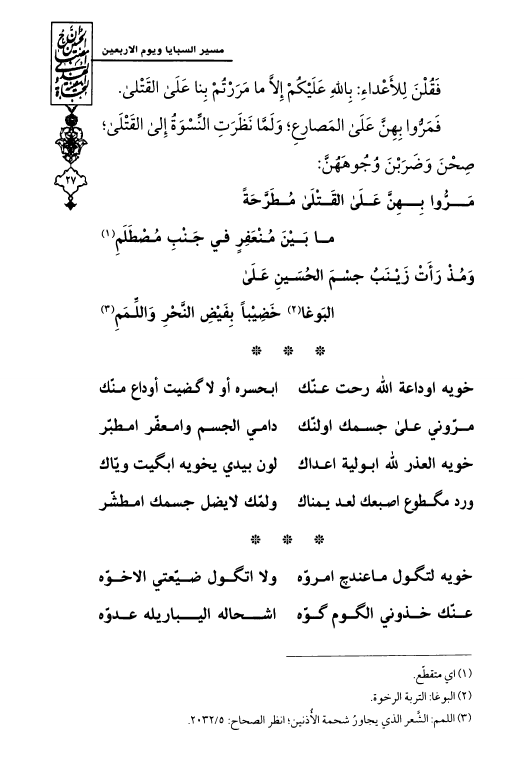 مسير السبايا ويوم الاربعين
فَقُلْنَ لِلأَعْداءِ: بِاللهِ عَلَيْكُمْ إِلاَّ ما مَرَرْتُمْ بِنا عَلَىٰ القَتْلىٰ.
فَمَرُّوا بِهِنَّ عَلَىٰ المَصارِعِ؛ وَلَمَّا نَظَرَتِ النِّسْوَةُ إِلىٰ القَتْلىٰ؛
صِحْنَ وَضَرَبْنَ وُجُوهَهُنَّ:
مَـــرُّوا بِـــهِنَّ عَـــلَىٰ القَـــتْلَىٰ مُـطَرَّحَةً
مـا بَـيْنَ مُـنْعَفِرٍ فـي جَـنْبِ مُـصْطَلَمِ(١)
وَمُـذْ رَأَتْ زَيْـنَبُ جسْـمَ الحُسَـينِ عَـلَىٰ
البَوغَا(٢) خَضِيْباً بِفَيْضِ النَّحْرِ وَاللِّـمَمِ(٣)
* * *
خويه اوداعة الله رحت عنّك ابحسره أو لا گضيت أوداع منّك
مرّوني علىٰ جسمك اولنّك دامي الجسم وامعفّر امطبّر
خويه العذر لله ابولية اعداك لون بيدي يخويه ابگيت ويّاك
ورد مگطوع اصبعك لعد يمناك ولمّك لايضل جسمك امطشّر
* * *
خويه لتگول ماعندچ امروّه ولا اتگول ضيّعتي الاخوّه
عنّك خذوني الگوم گوّه اشحاله اليباريله عدوّه
(١) اي متقطّع.
(٢) البوغا: التربة الرخوة.
(٣) اللمم: الشَّعر الذي يجاورُ شحمة الأُذنين؛ انظر الصحاح: ٢٠٣٢/٥.
٢٧